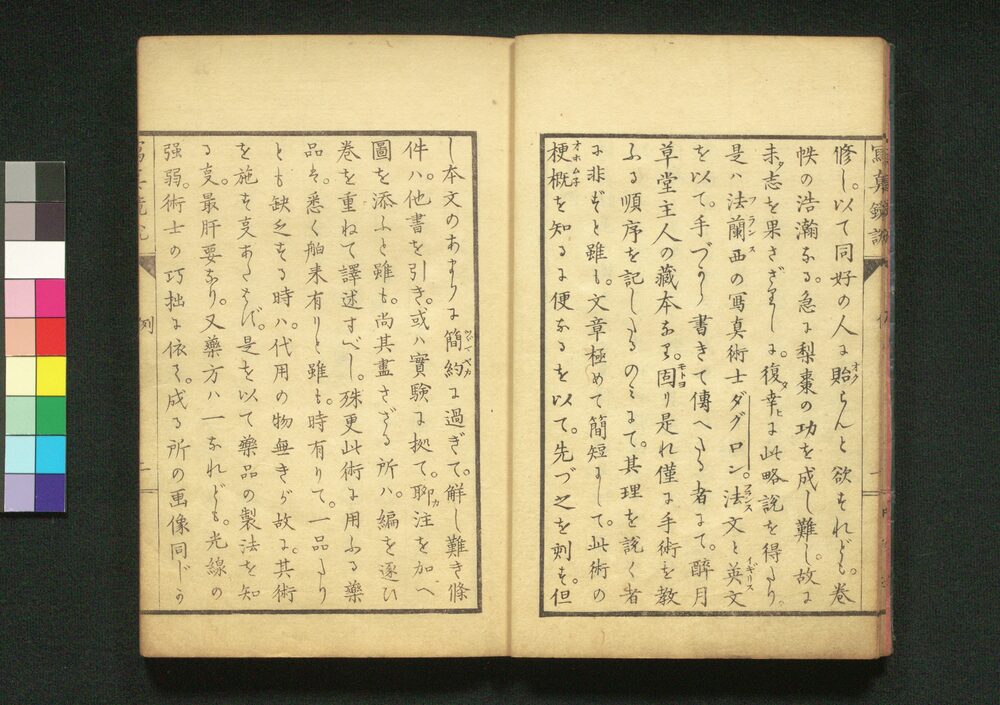 修し。以て同好の人に貽らんと欲それども。巻
帙の浩瀚なる。急に梨棗の功を成し難し。故に
未タ志を果さざりしに。復幸ヒに此略説を得たり。
是ハ法蘭西フランスの寫真術士ダグロン。法フランス文と英イギリス文
を以て。手づから書きて傳へたる者にて。醉月
草堂主人の藏本なり。固モトヨり是れ僅に手術を教
ふる順序を記したるのミにて。其理を説く者
に非ずと雖も。文章極めて簡短にして。此術の
梗概オホムネを知るに便なるを以て。先づ之を刻す。但
し本文のあまりに簡約に過ぎて。解し難き條
件ハ。他書を引き。或ハ實験に拠て。聊カ注を加へ
圖を添ふと雖も。尚其盡さざる所ハ。編を逐ひ
巻を重ねて譯述すべし。殊更此術に用ふる藥
品ハ。悉く舶来有りと雖も。時有りて。一品たり
とも缺乏する時ハ。代用の物無きが故に。其術
を施す事あたはず。是を以て藥品の製法を知
る事。最肝要なり。又藥方ハ一なれども。光線の
強弱。術士の巧拙に依て。成る所の画像同じか
寫真鏡説
例
二